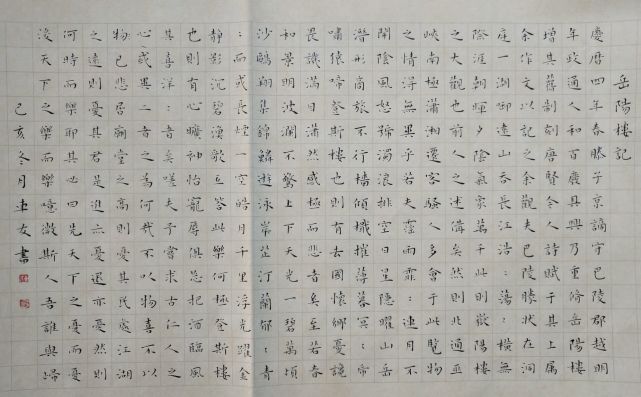 岳陽樓記
慶曆四年春滕子京謫守巴陵郡越明
年政通人和百廢具興乃重修岳陽樓
增其舊制刻唐賢今人詩賦于其上屬
余作文以記之余觀夫巴陵勝狀在洞
庭一湖銜遠山吞長江浩：蕩：橫無
際涯朝暉夕陰氣象萬千此則岳陽樓
之大觀也前人之述備矣然則北通巫
峽南極瀟湘遷客騷人多會于此覽物
之情得無異乎若夫霪雨霏：連月不
開陰風怒號濁浪排空日星隱曜山岳
潛形商旅不行檣傾楫摧薄暮冥：虎
嘯猿啼登斯樓也則有去國懷鄉憂讒
畏譏滿目蕭然感極而悲者矣至若春
和景明波瀾不驚上下天光一碧萬頃
沙鷗翔集錦鱗遊泳岸芷汀蘭郁：青
：而或長煙一空皓月千里浮光躍金
靜影沉璧漁歌互答此樂何極登斯樓
也則有心曠神怡寵辱俱忘把酒臨風
其喜洋：者矣嗟夫予嘗求古仁人之
心或異二者之為何哉不以物喜不以
物己悲居廟堂之高則憂其民處江湖
之遠則憂其君是進亦憂退亦憂然則
何時而樂耶其必曰先天下之憂而憂
後天下之樂而樂噫微斯人吾誰與歸
己亥冬月車友書